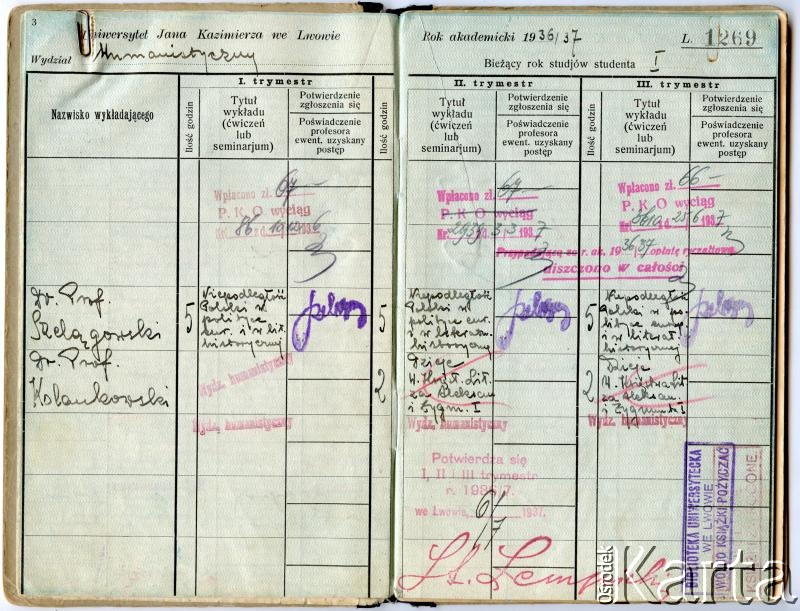 3
Uniwersytet Jana Kazimierza we Lwowie
Wydział Humanistyczny
Rok akademicki 1936/37
L. 1269
Bieżący rok studjów studenta I
Nazwisko wykładającego
Ilość godzin
I. trymestr
Tytuł
wykładu
(ćwiczeń
lub
seminarjum)
Potwierdzenie
zgłoszenia się
Poświadczenie
profesora
ewent. uzyskany
postęp
Ilość godzin
II. trymestr
Tytuł
wykładu
(ćwiczeń
lub
seminarjum)
Potwierdzenie
zgłoszenia się
Poświadczenie
profesora
ewent. uzyskany
postęp
Ilość godzin
III. trymestr
Tytuł
wykładu
(ćwiczeń
lub
seminarjum)
Potwierdzenie
zgłoszenia się
Poświadczenie
profesora
ewent. uzyskany
postęp
Wpłacono zł. 67—
P. K. O wyciąg
Nr.
Wpłacono zł. 67—
P. K. O wyciąg
Nr. d. 3.3 1937
Wpłacono zł. 66—
P. K. O wyciąg
Nr. 1937
Przypadającą za r. ak. 1936/37 opłatę ryczałtową
uiszczono w całości
Dr. Prof.
Szelągowski
Dr. Prof.
Kolankowski
5
Niepodległość
Polski w
polityce
eur. i w lit.
historycznej
5
Niepodległość
Polski w
polityce eur.
i w literat.
historycznej
2
Dzieje
W. Księst. Lit.
za Aleksan.
i Zygm. I
5
Niepodległość
Polski w po-
lityce europ.
i w literat.
historycznej
2
Dzieje
W. Księstwa Lit.
za Aleksan.
i Zygmunta I
Wydz. humanistyczny
Wydz. humanistyczny
Wydz. humanistyczny
Wydz. humanistyczny
Potwierdza się
I, II i III trymestr
r. 1936/7.
we Lwowie, 1937.
BIBLIOTEKA UNIWERSYTECKA
WE LWOWIE
WOLNO KSIĄŻKI POŻYCZAĆ
Ośrodek
Karta